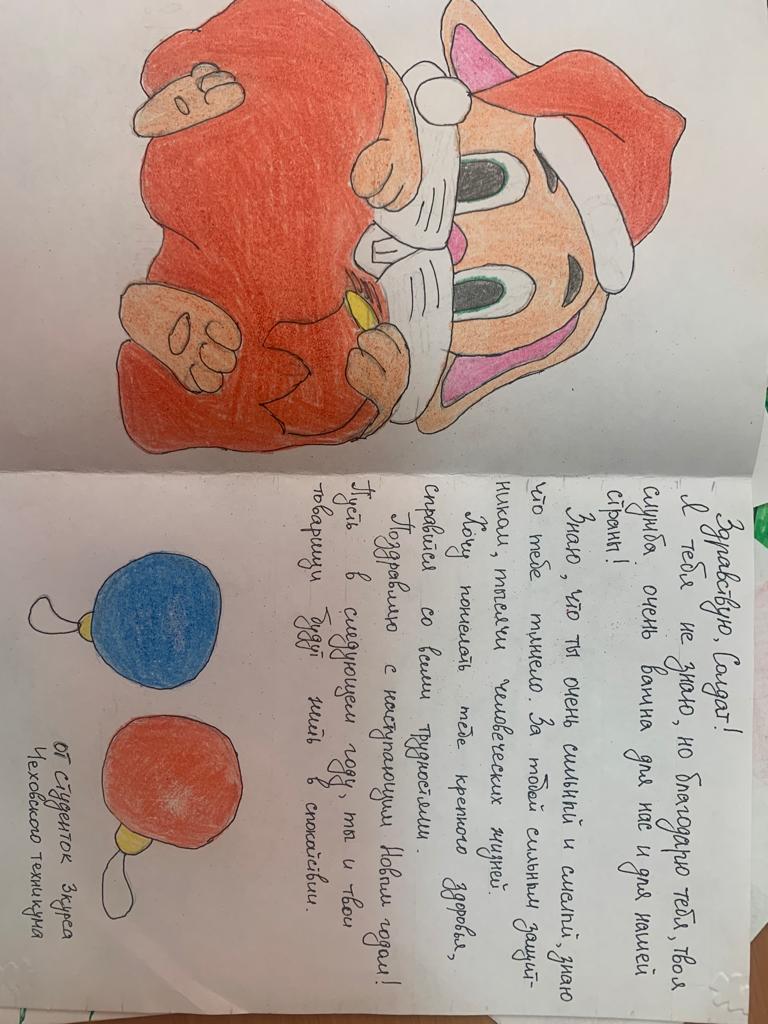 Здравствую, Солдат!
Я тебя не знаю, но благодарю тебя, твоя
служба очень важна для нас и для нашей
страны!
Знаю, что ты очень сильный и смелый, знаю
что тебе тяжело. За тобой сильным защит-
ником, тысячи человеческих жизней.
Хочу пожелать тебе крепкого здоровья,
справится со всеми трудностями.
Поздравляю с наступающим Новым годом!
Пусть в следующем году, ты и твои
товарищи будут жить в спокайствии.
от студенток 3 курса
Чеховского техникума